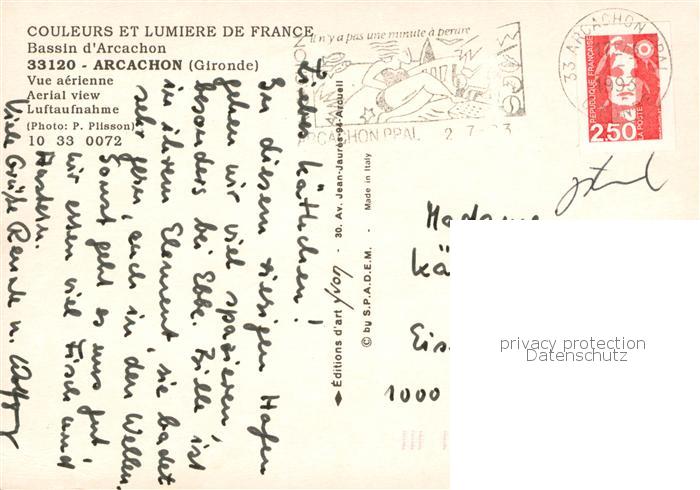 COULEURS ET LUMIERE DE FRANCE
Bassin d'Arcachon
33120 - ARCACHON (Gironde)
Vue aérienne
Aerial view
Luftaufnahme
(Photo: P. Plisson)
10 33 0072
Liebes Kätchen!
In diesem riesigen Hafen
gehen wir viel spazieren,
besonders bei Ebbe. Bille ist
in ihrem Element, sie badet
sehr gern, auch in den Wellen.
Sonst geht es uns gut,
wir essen viel Fisch und
Austern.
Viele Grüße Renate u. Wolfgang
Éditions d'art yvon - 30, Av. Jean-Jaurès-94-Arcueil
© by S.P.A.D.E.M. - Made in Italy
il n'y a pas une minute à perdre
ARCACHON PPAL 2-7-
33 ARCACHON PPAL
1993
RÉPUBLIQUE FRANÇAISE
LA POSTE
2,50
Madame
Kä
Eis
1000
privacy protection
Datenschutz